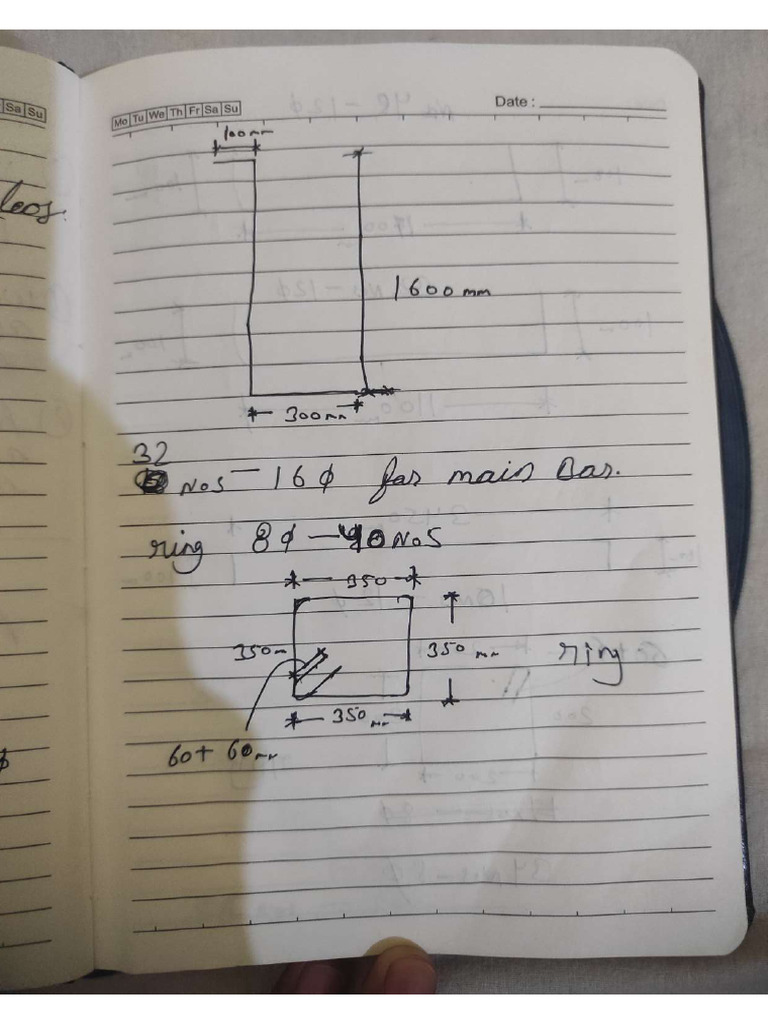 Sa Su
Mo Tu We Th Fr Sa Su
Date :
100mm
1600mm
300mm
32
Nos - 16ϕ for main Bar.
ring 8ϕ - 40 Nos
350
350m
350 mm
ring
350 mm
60+ 60mm